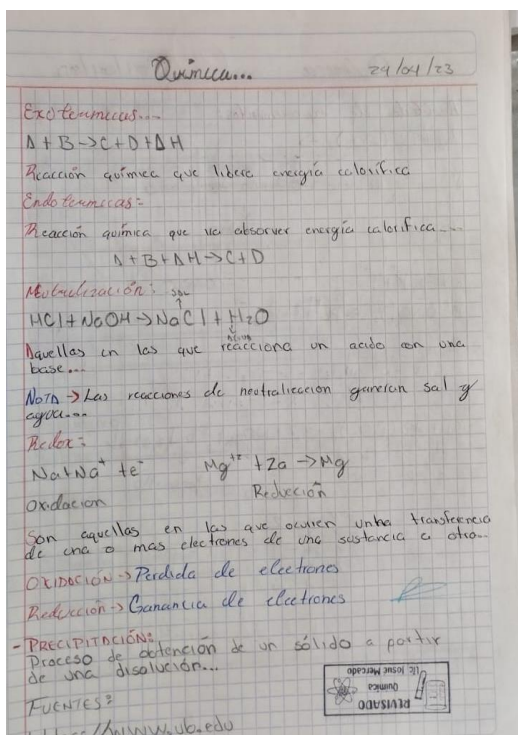 Química... 24/04/23
Exotermicas...
A + B -> C + D + ΔH
Reacción química que libera energía calorífica
Endotermicas=
Reacción química que va absorver energía calorifica...
A + B + ΔH -> C + D
Neutralización: sal
↑
HCl + NaOH -> NaCl + H2O
↓
Aquellas en las que reacciona un acido con una
base...
NOTA -> Las reacciones de neutralizacion generan sal y
agua...
Redox=
Na + Na+ + e- Mg+2 + 2e -> Mg
Oxidacion Reducción
Son aquellas en las que ocurren unha transferencia
de una o mas electrones de una sustancia a otra...
OXIDACIÓN -> Perdida de electrones
Reducción -> Ganancia de electrones
- PRECIPITACIÓN:
Proceso de obtención de un sólido a partir
de una disolución...
REVISADO
Química
Lic Josue Mercado
FUENTES:
www.ub.edu